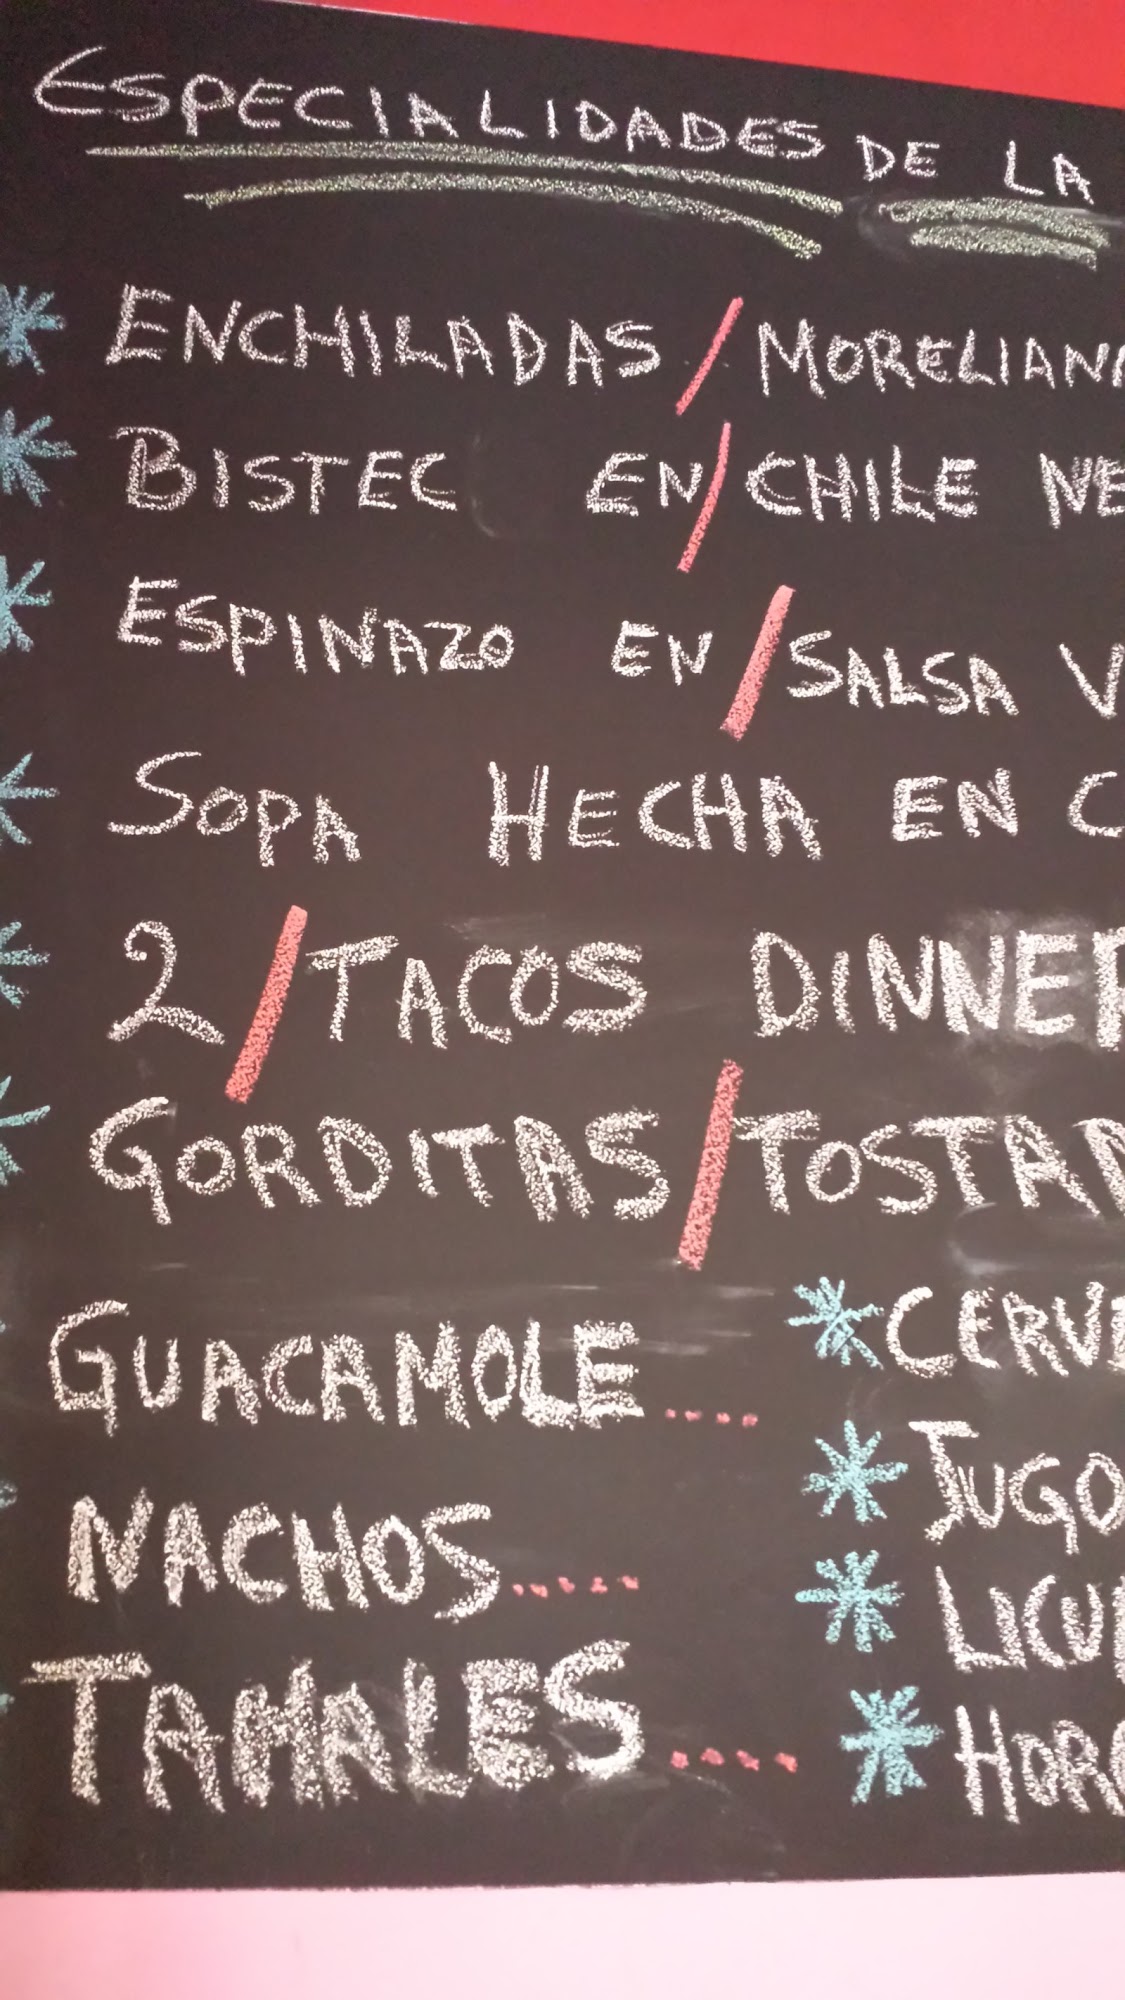 ESPECIALIDADES DE LA
ENCHILADAS / MORELIAN
BISTEC EN / CHILE NE
ESPINAZO EN / SALSA V
SOPA HECHA EN C
2 / TACOS DINNER
GORDITAS / TOSTAD
GUACAMOLE ....
NACHOS .....
TAMALES ....
CERVE
JUGO
LICU
HORC